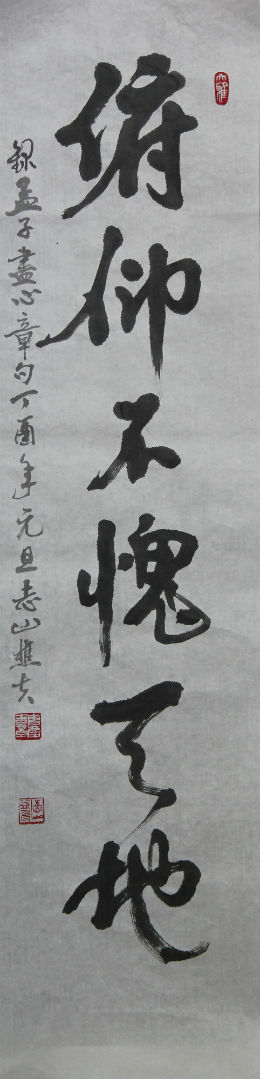 俯仰不愧天地
錄孟子盡心章句丁酉年元旦志山樵夫